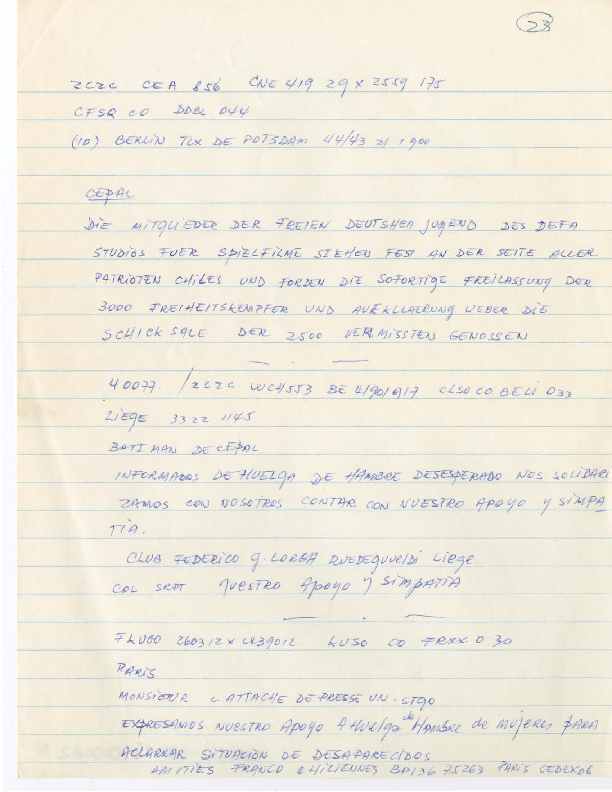 23
ZCZC CEA 856 CNE 419 29 X 2559 175
CFSQ CO DDBL 044
(10) BERLIN TLX DE POTSDAM 44/43 21 1900
CEPAL
DIE MITGLIEDER DER FREIEN DEUTSHEN JUGEND DES DEFA
STUDIOS FUER SPIELFILME STEHEN FEST AN DER SEITE ALLER
PATRIOTEN CHILES UND FORDEN DIE SOFORTIGE FREILASSUNG DER
3000 FREIHEITSKEMPFER UND AUFKLLAERUNG UEBER DIE
SCHICKSALE DER 2500 VERMISSTEN GENOSSEN
40077. /ZCZC WCH553 BE 4190/017 CLSO CO BELI 033
LIEGE 33 22 1145
BATIMAN DE CEPAL
INFORMADOS DE HUELGA DE HAMBRE DESESPERADO NOS SOLIDARI
ZAMOS CON NOSOTROS CONTAR CON NUESTRO APOYO Y SIMPA
TIA.
CLUB FEDERICO G. LORCA Liege.
COL SRDT NUESTRO APOYO Y SIMPATIA
FLUGO 260312 X CR39012 LUSO CO FRXX 030
PARIS
MONSIEUR L ATTACHE DE PRESSE UN. STGO
EXPRESAMOS NUESTRO APOYO A HUELGA de HAMBRE de MUJERES PARA
ACLARRAR SITUACION DE DESAPARECIDOS
AMITIES FRANCO CHILIENNES BP136 75263 PARIS CEDEX06